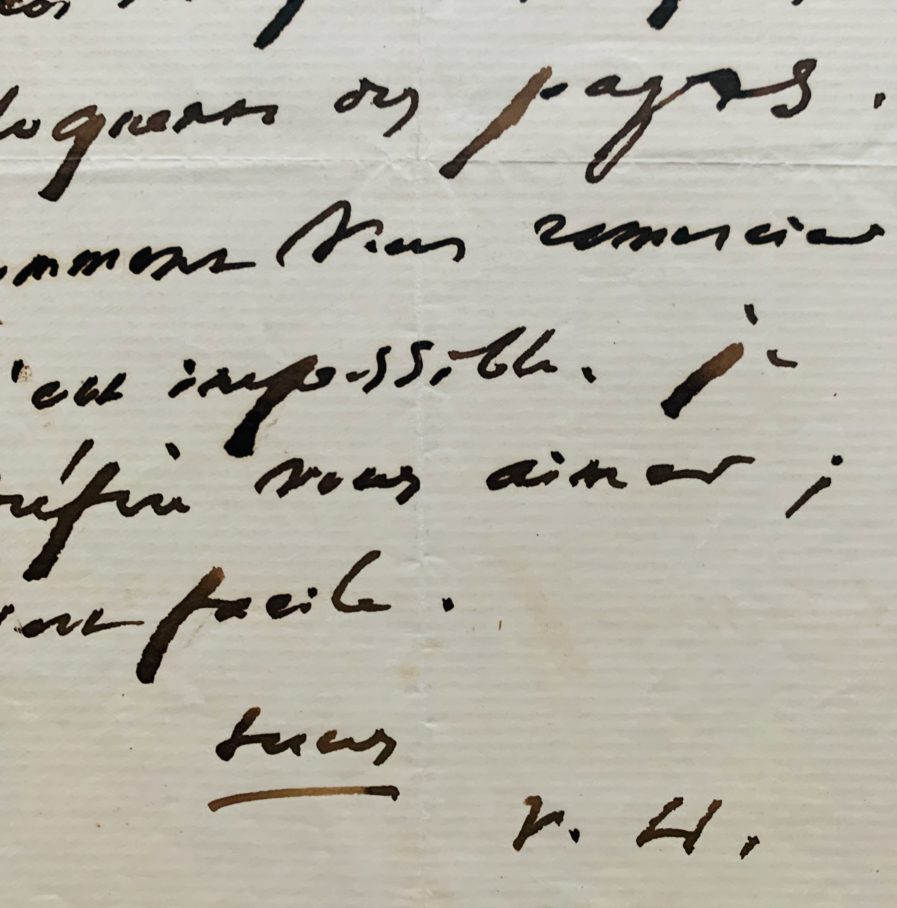 loquentes pages.
omment vous remercier
'est impossible. je
réfère vous aimer ;
'est facile.
tuus
V. H.